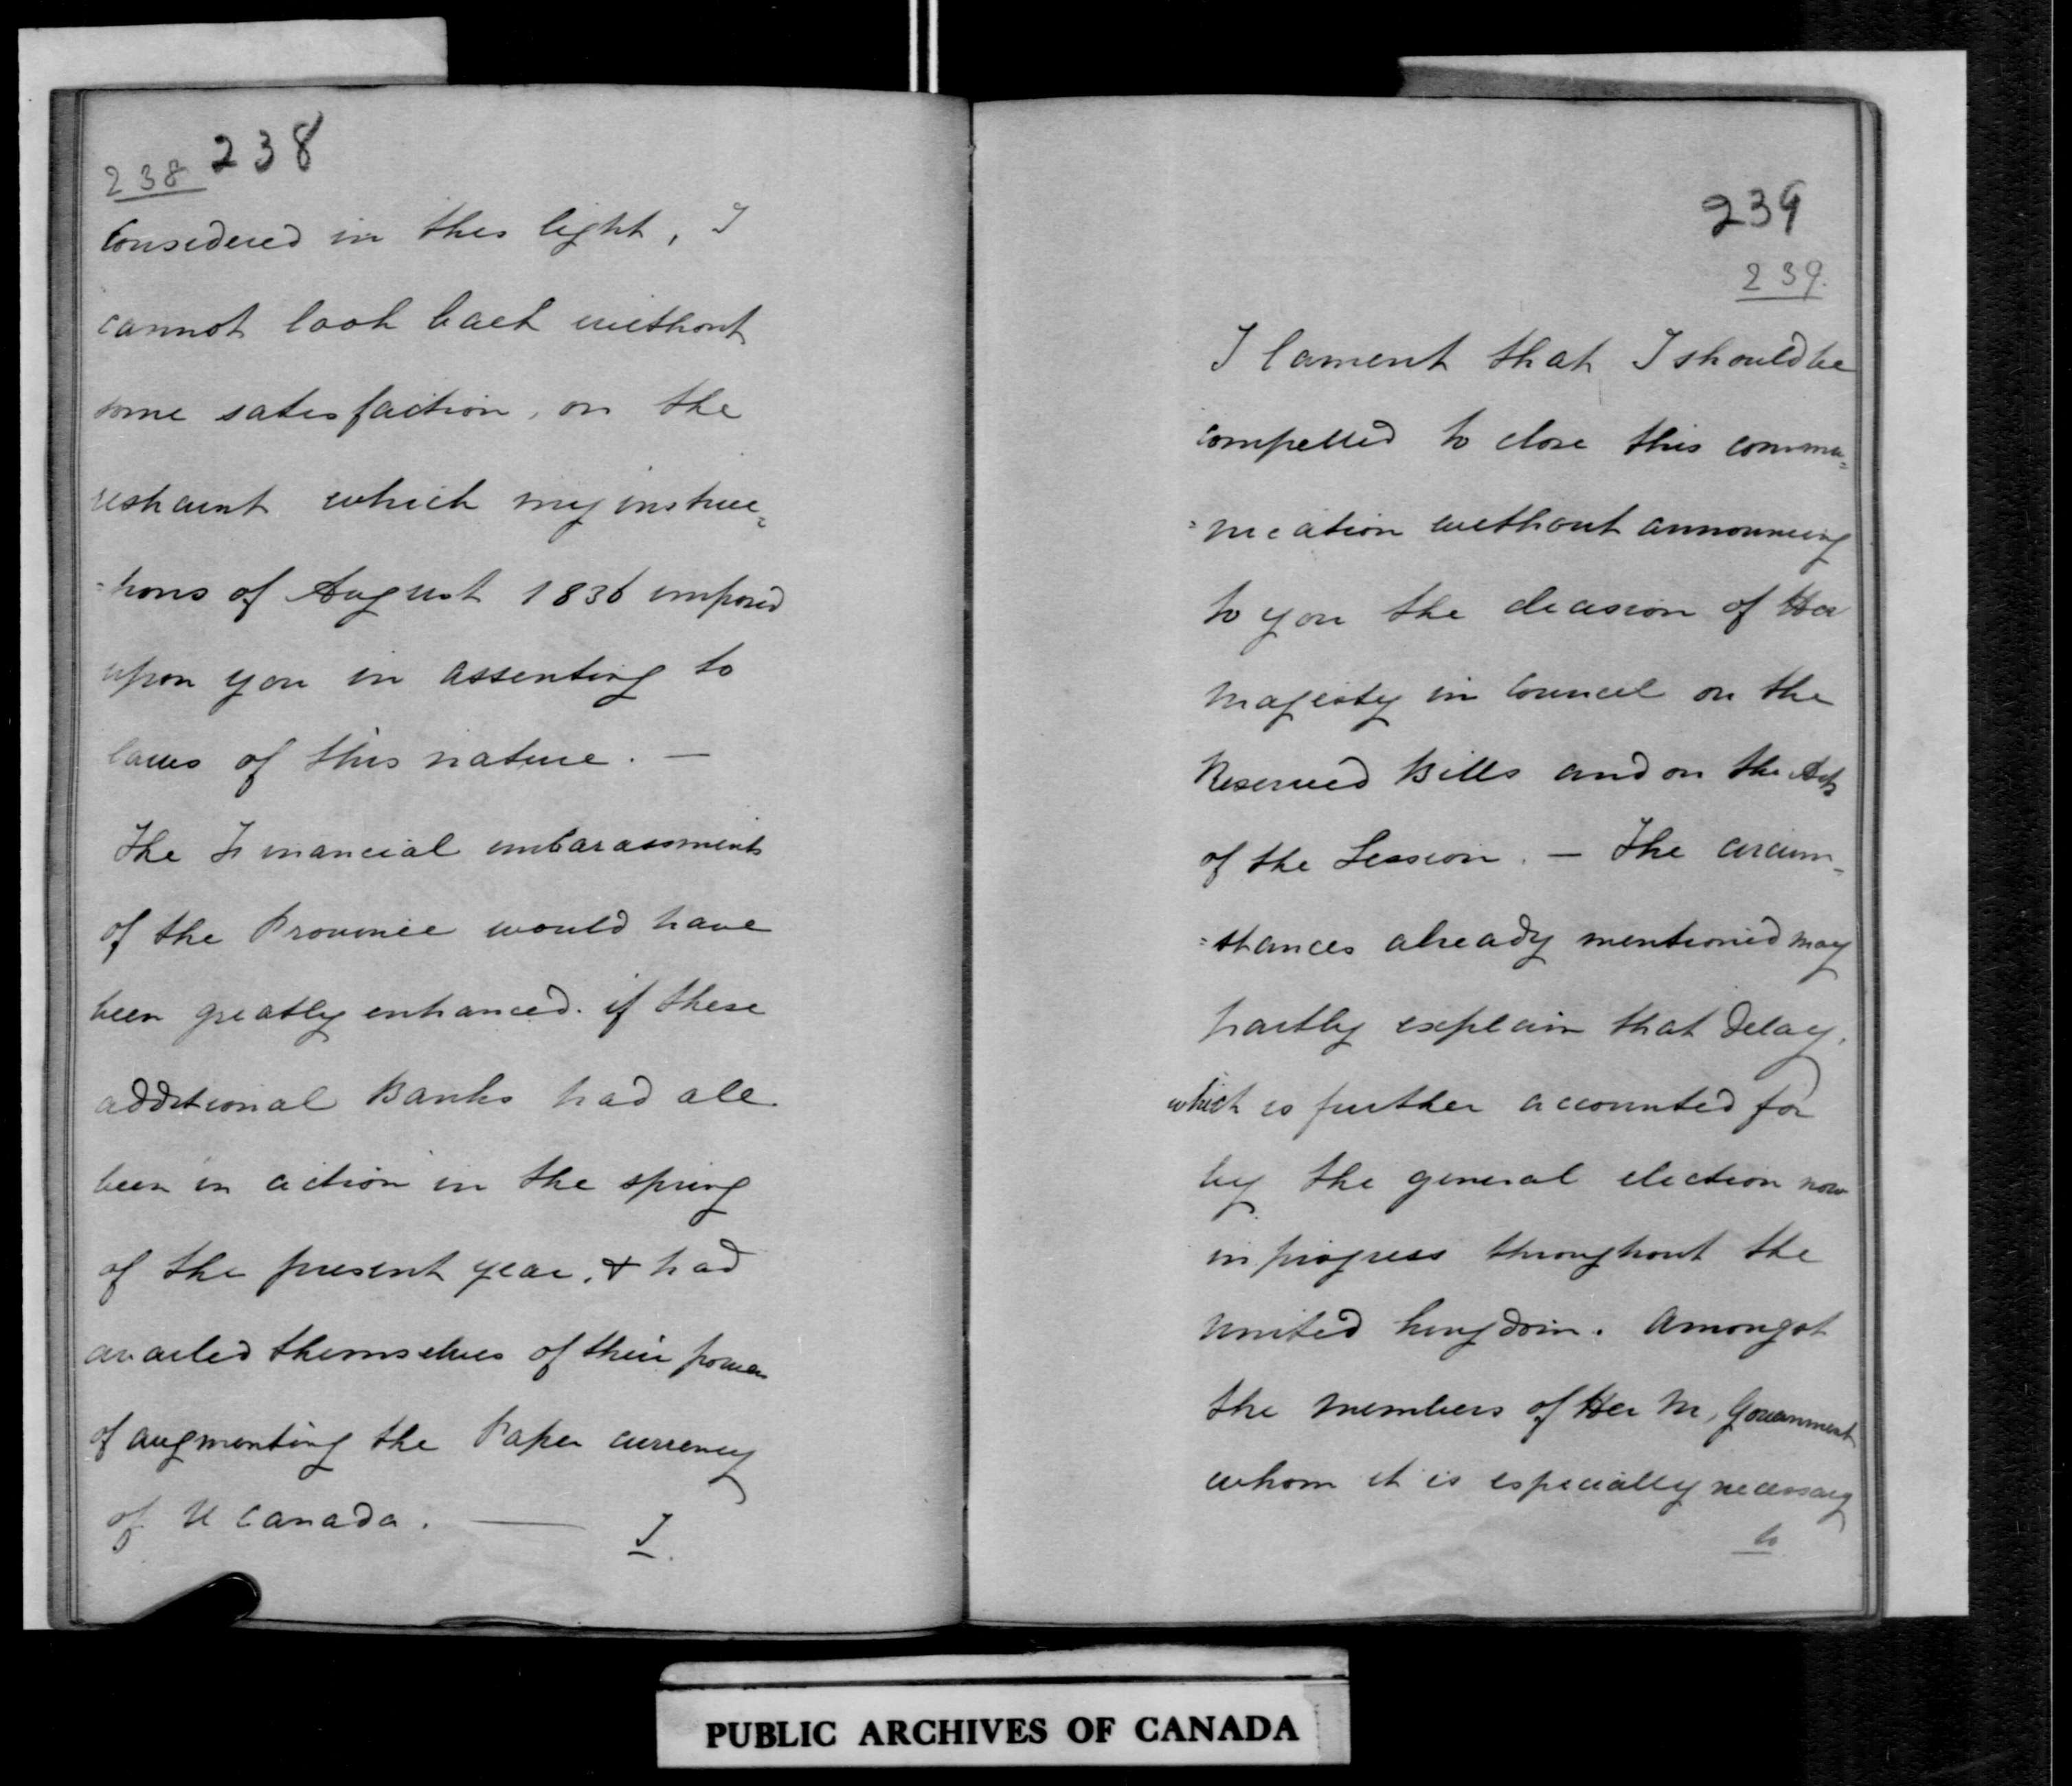 238 238
Considered in this light, I
cannot look back without
some satisfaction, on the
restraint which my instruc=
=tions of August 1836 imposed
upon you in assenting to
laws of this nature. —
The Financial embarassments
of the Province would have
been greatly enhanced. if these
additional Banks had all
been in action in the spring
of the present year, & had
availed themselves of their power
of augmenting the Paper currency
of U Canada. — I
239
239.
I lament that I should be
compelled to close this commu=
=nication without announcing
to you the decision of Her
Majesty in Council on the
Reserved Bills and on the Acts
of the Session. — The circum=
=stances already mentioned may
partly explain that delay,
which is further accounted for
by the general election now
in progress throughout the
United Kingdom. Amongst
the Members of Her M, Government
whom it is especially necessary
to
PUBLIC ARCHIVES OF CANADA